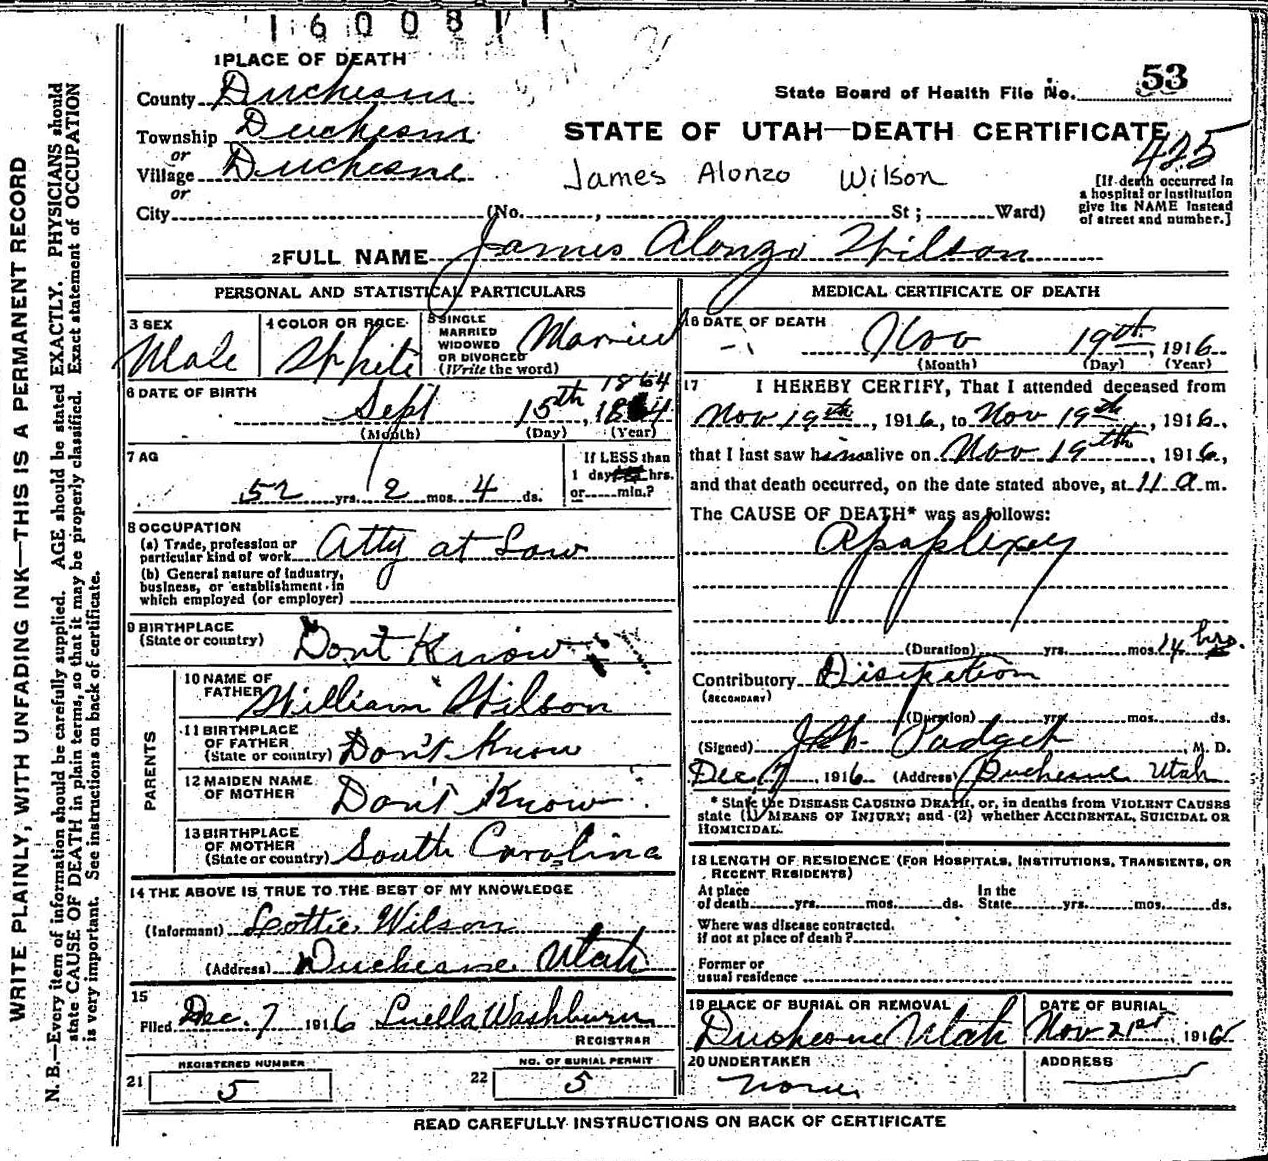 1600811
1 PLACE OF DEATH
County Duchesne
State Board of Health File No. 53
Township Duchesne
or
STATE OF UTAH—DEATH CERTIFICATE
425
Village Duchesne
or
James Alonzo Wilson
[If death occurred in
a hospital or institution
give its NAME instead
of street and number.]
City (No. , St ; Ward)
2 FULL NAME James Alonzo Wilson
PERSONAL AND STATISTICAL PARTICULARS
3 SEX
Male
4 COLOR OR RACE
White
5 SINGLE
MARRIED
WIDOWED
OR DIVORCED
(Write the word)
Married
6 DATE OF BIRTH
1864
Sept 15th, 1864
(Month) (Day) (Year)
7 AG
52 yrs. 2 mos. 4 ds.
If LESS than
1 day hrs.
or min.?
8 OCCUPATION
(a) Trade, profession or
particular kind of work Atty at Law
(b) General nature of industry,
business, or establishment in
which employed (or employer)
9 BIRTHPLACE
(State or country) Don't Know
PARENTS
10 NAME OF
FATHER William Wilson
11 BIRTHPLACE
OF FATHER
(State or country) Don't Know
12 MAIDEN NAME
OF MOTHER Don't Know
13 BIRTHPLACE
OF MOTHER
(State or country) South Carolina
14 THE ABOVE IS TRUE TO THE BEST OF MY KNOWLEDGE
(Informant) Lottie Wilson
(Address) Duchesne Utah
15
Filed Dec. 7 1916 Luella Washburn
REGISTRAR
REGISTERED NUMBER
21 5
NO. OF BURIAL PERMIT
22 5
MEDICAL CERTIFICATE OF DEATH
16 DATE OF DEATH
Nov 19th, 1916
(Month) (Day) (Year)
17 I HEREBY CERTIFY, That I attended deceased from
Nov 19th, 1916, to Nov 19th, 1916,
that I last saw him alive on Nov 19th, 1916,
and that death occurred, on the date stated above, at 11 a m.
The CAUSE OF DEATH* was as follows:
Apoplexey
(Duration) yrs. mos. 14 hrs.
Contributory Disipation
(SECONDARY)
(Duration) yrs. mos. ds.
(Signed) Padgett, M. D.
Dec 7, 1916 (Address) Duchesne Utah
* State the DISEASE CAUSING DEATH, or, in deaths from VIOLENT CAUSES
state (1) MEANS OF INJURY; and (2) whether ACCIDENTAL, SUICIDAL OR
HOMICIDAL.
18 LENGTH OF RESIDENCE (FOR HOSPITALS, INSTITUTIONS, TRANSIENTS, OR
RECENT RESIDENTS)
At place
of death yrs. mos. ds.
In the
State yrs. mos. ds.
Where was disease contracted.
if not at place of death?
Former or
usual residence
19 PLACE OF BURIAL OR REMOVAL
Duchesne Utah
DATE OF BURIAL
Nov 21st, 1916
20 UNDERTAKER
None
ADDRESS
READ CAREFULLY INSTRUCTIONS ON BACK OF CERTIFICATE
WRITE PLAINLY, WITH UNFADING INK—THIS IS A PERMANENT RECORD
N. B.—Every item of information should be carefully supplied. AGE should be stated EXACTLY. PHYSICIANS should
state CAUSE OF DEATH in plain terms, so that it may be properly classified. Exact statement of OCCUPATION
is very important. See instructions on back of certificate.